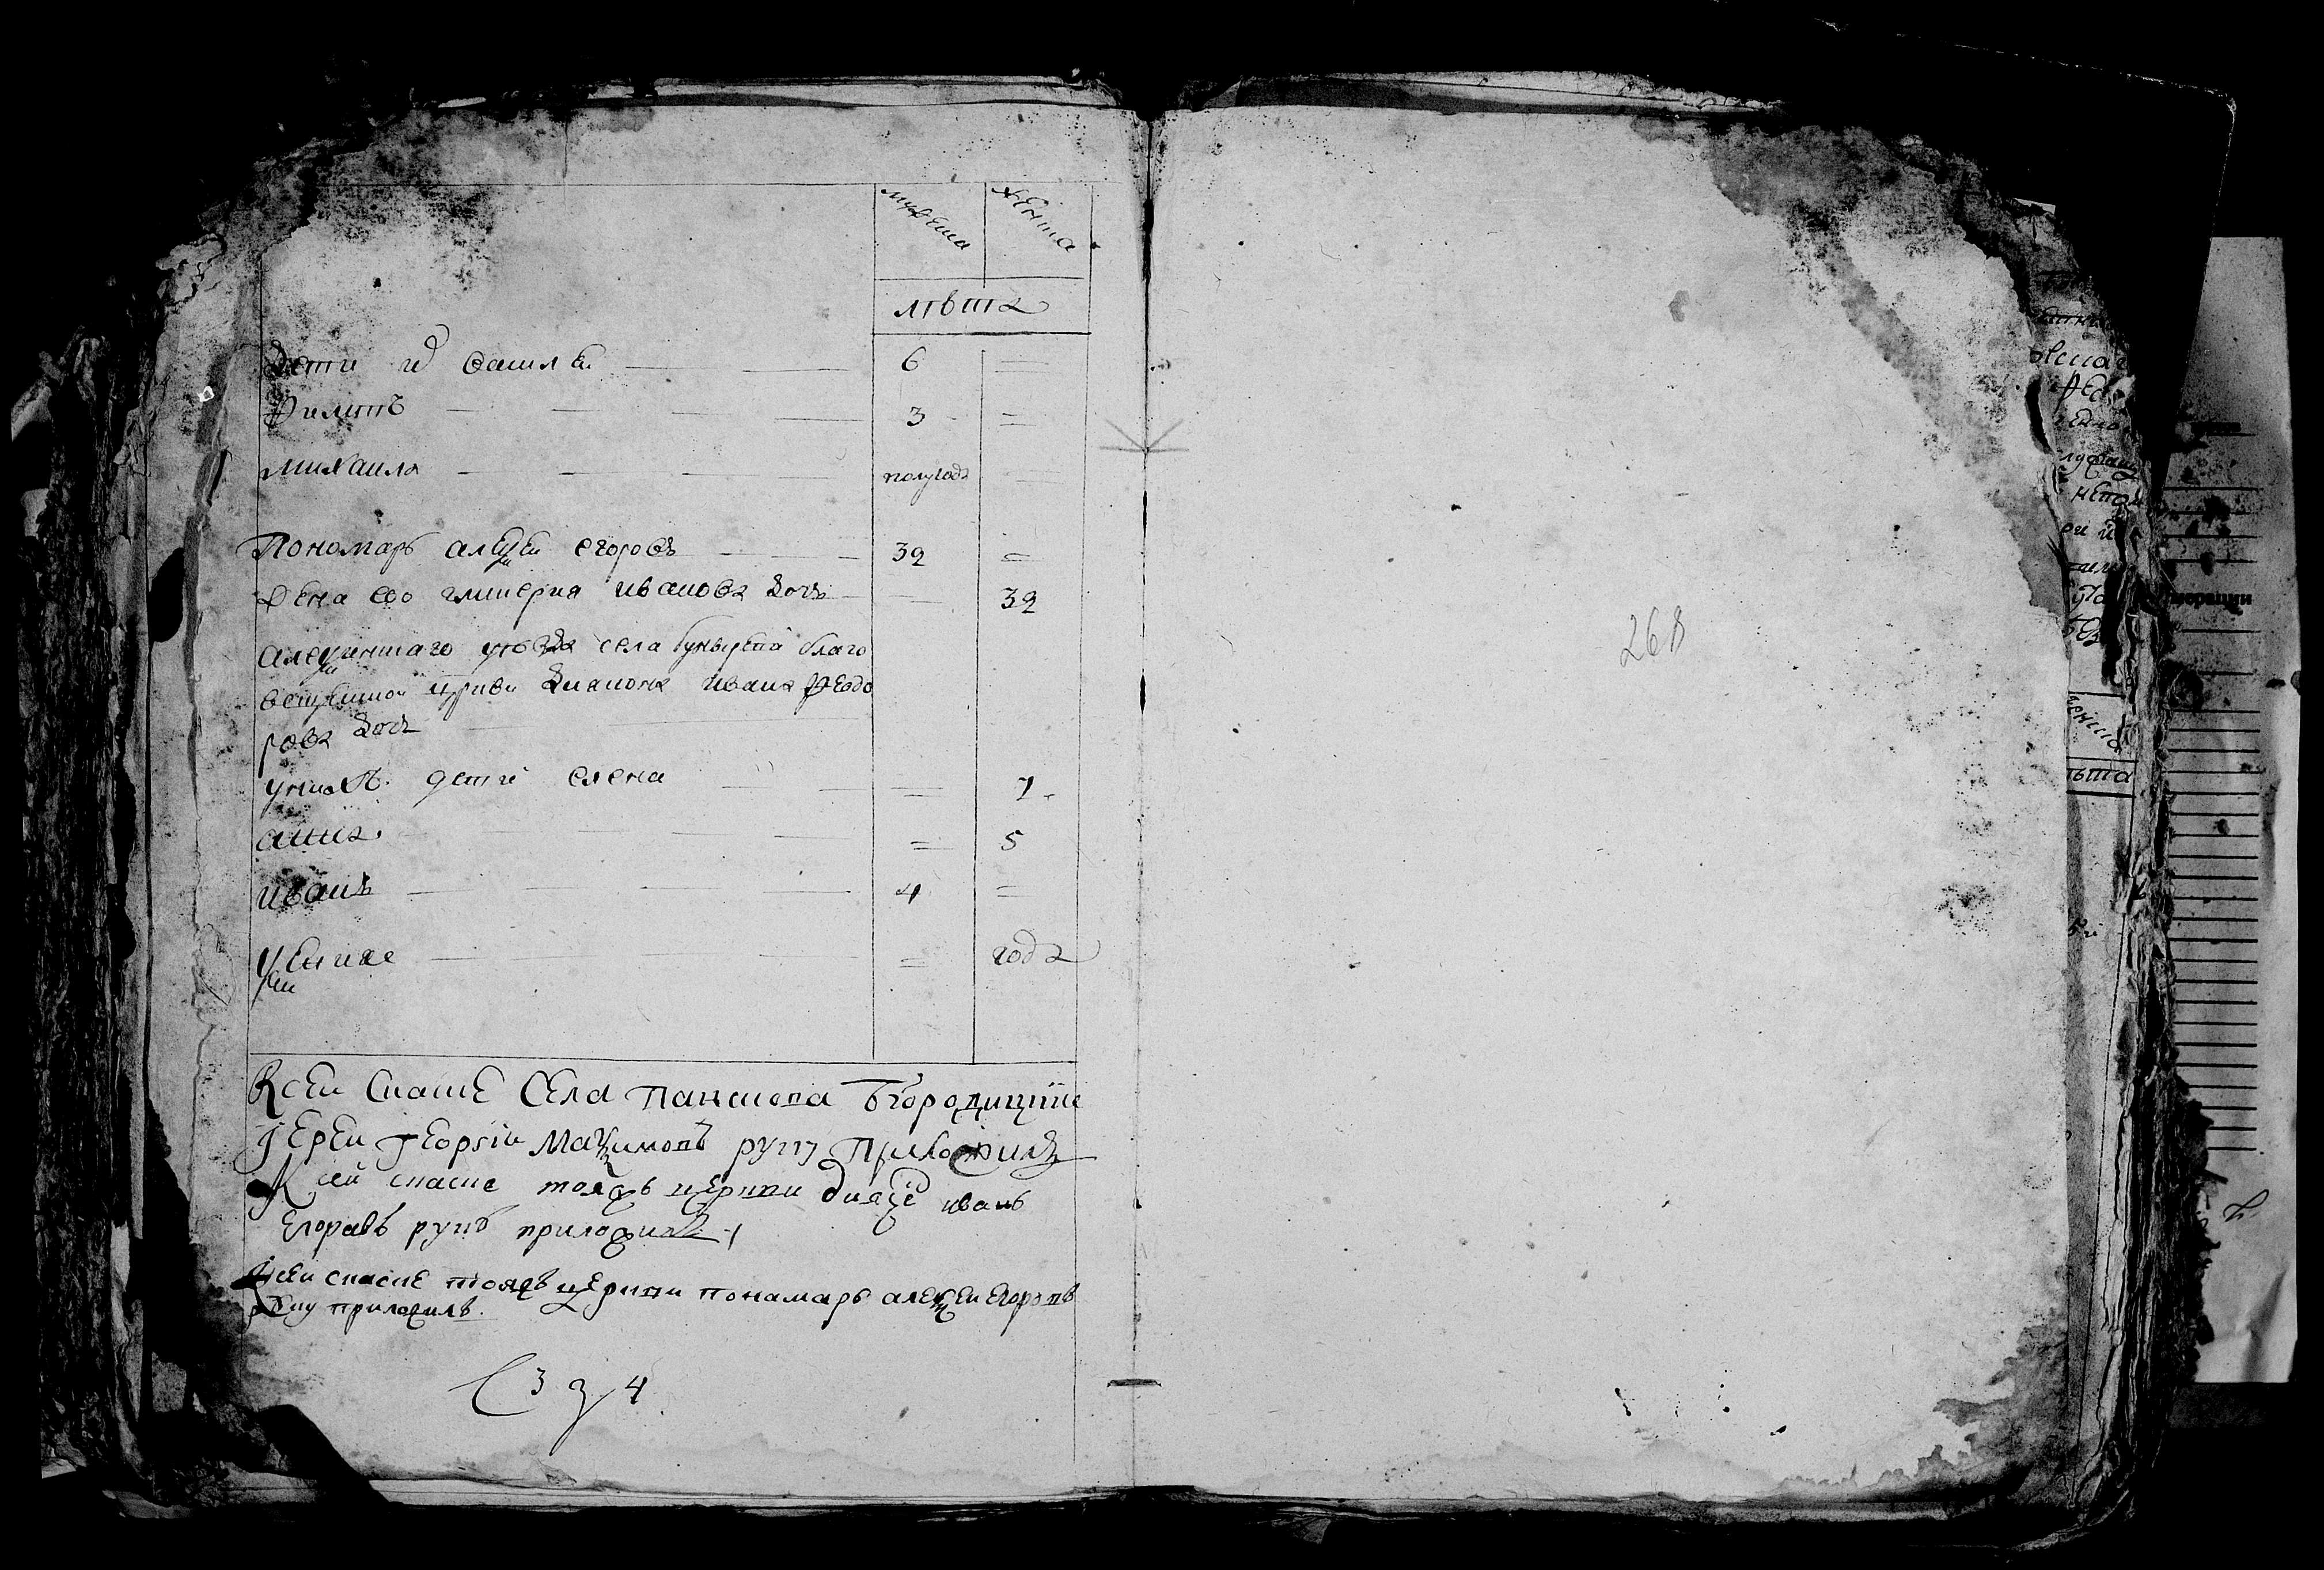 мужеска
женска
лѣта
дети и василеи 6 =
Филипъ 3 =
михаила полугода
Пономарь алеѯеи егоровъ 32 =
Жена ево гликерия иванова дочь 32
алексинскаго уезда села благо
вещенской цркви диакона ивана Феодо
рова дочь
у них дети елена = 7
анна = 5
иванъ 4 =
= года
К сеи скаске Села панскова Бгородицкие
Iереи Георгiи Маѯимовъ руку Приложилъ
К сей скаске тояжъ церкви дияче иванъ
Егоравъ руку приложилъ
К сеи скаске тояжъ церкви понамарь алеѯеи Егоровъ
руку приложилъ.
3 4
268